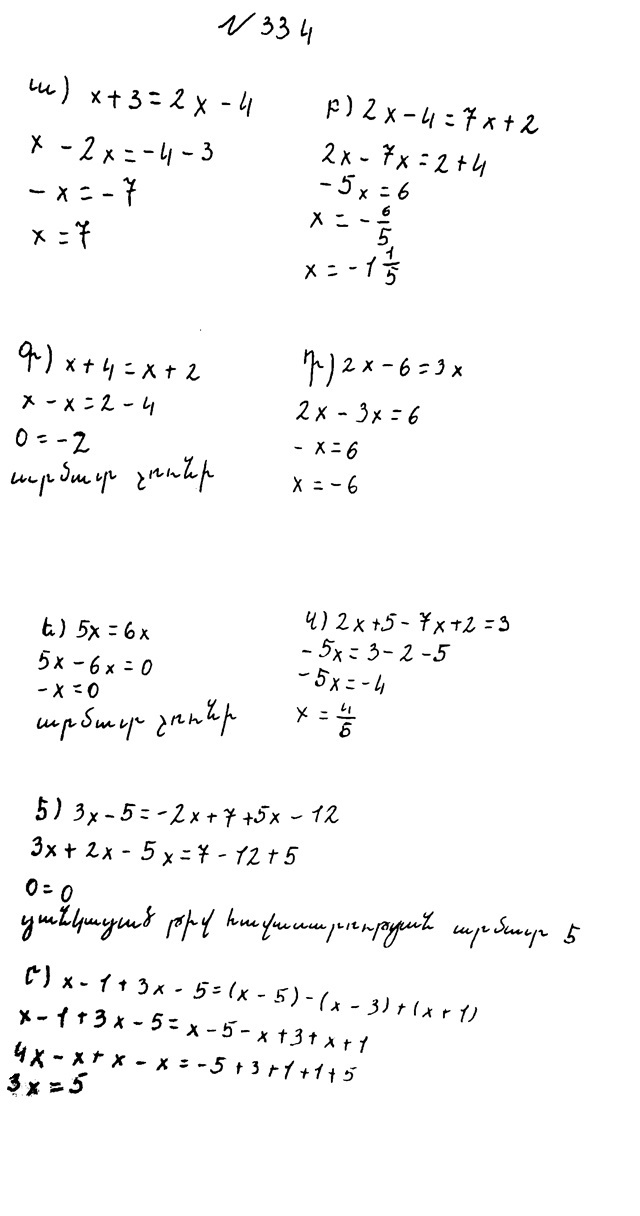 № 334
ա) x + 3 = 2x - 4
x - 2x = -4 - 3
- x = - 7
x = 7
բ) 2x - 4 = 7x + 2
2x - 7x = 2 + 4
- 5x = 6
x = - 6/5
x = - 1 1/5
գ) x + 4 = x + 2
x - x = 2 - 4
0 = - 2
արմատ չունի
դ) 2x - 6 = 3x
2x - 3x = 6
- x = 6
x = - 6
ե) 5x = 6x
5x - 6x = 0
- x = 0
արմատ չունի
զ) 2x + 5 - 7x + 2 = 3
- 5x = 3 - 2 - 5
- 5x = - 4
x = 4/5
է) 3x - 5 = -2x + 7 + 5x - 12
3x + 2x - 5x = 7 - 12 + 5
0 = 0
ցանկացած թիվ հավասարության արմատ է
ը) x - 1 + 3x - 5 = (x - 5) - (x - 3) + (x + 1)
x - 1 + 3x - 5 = x - 5 - x + 3 + x + 1
4x - x + x - x = - 5 + 3 + 1 + 1 + 5
3x = 5